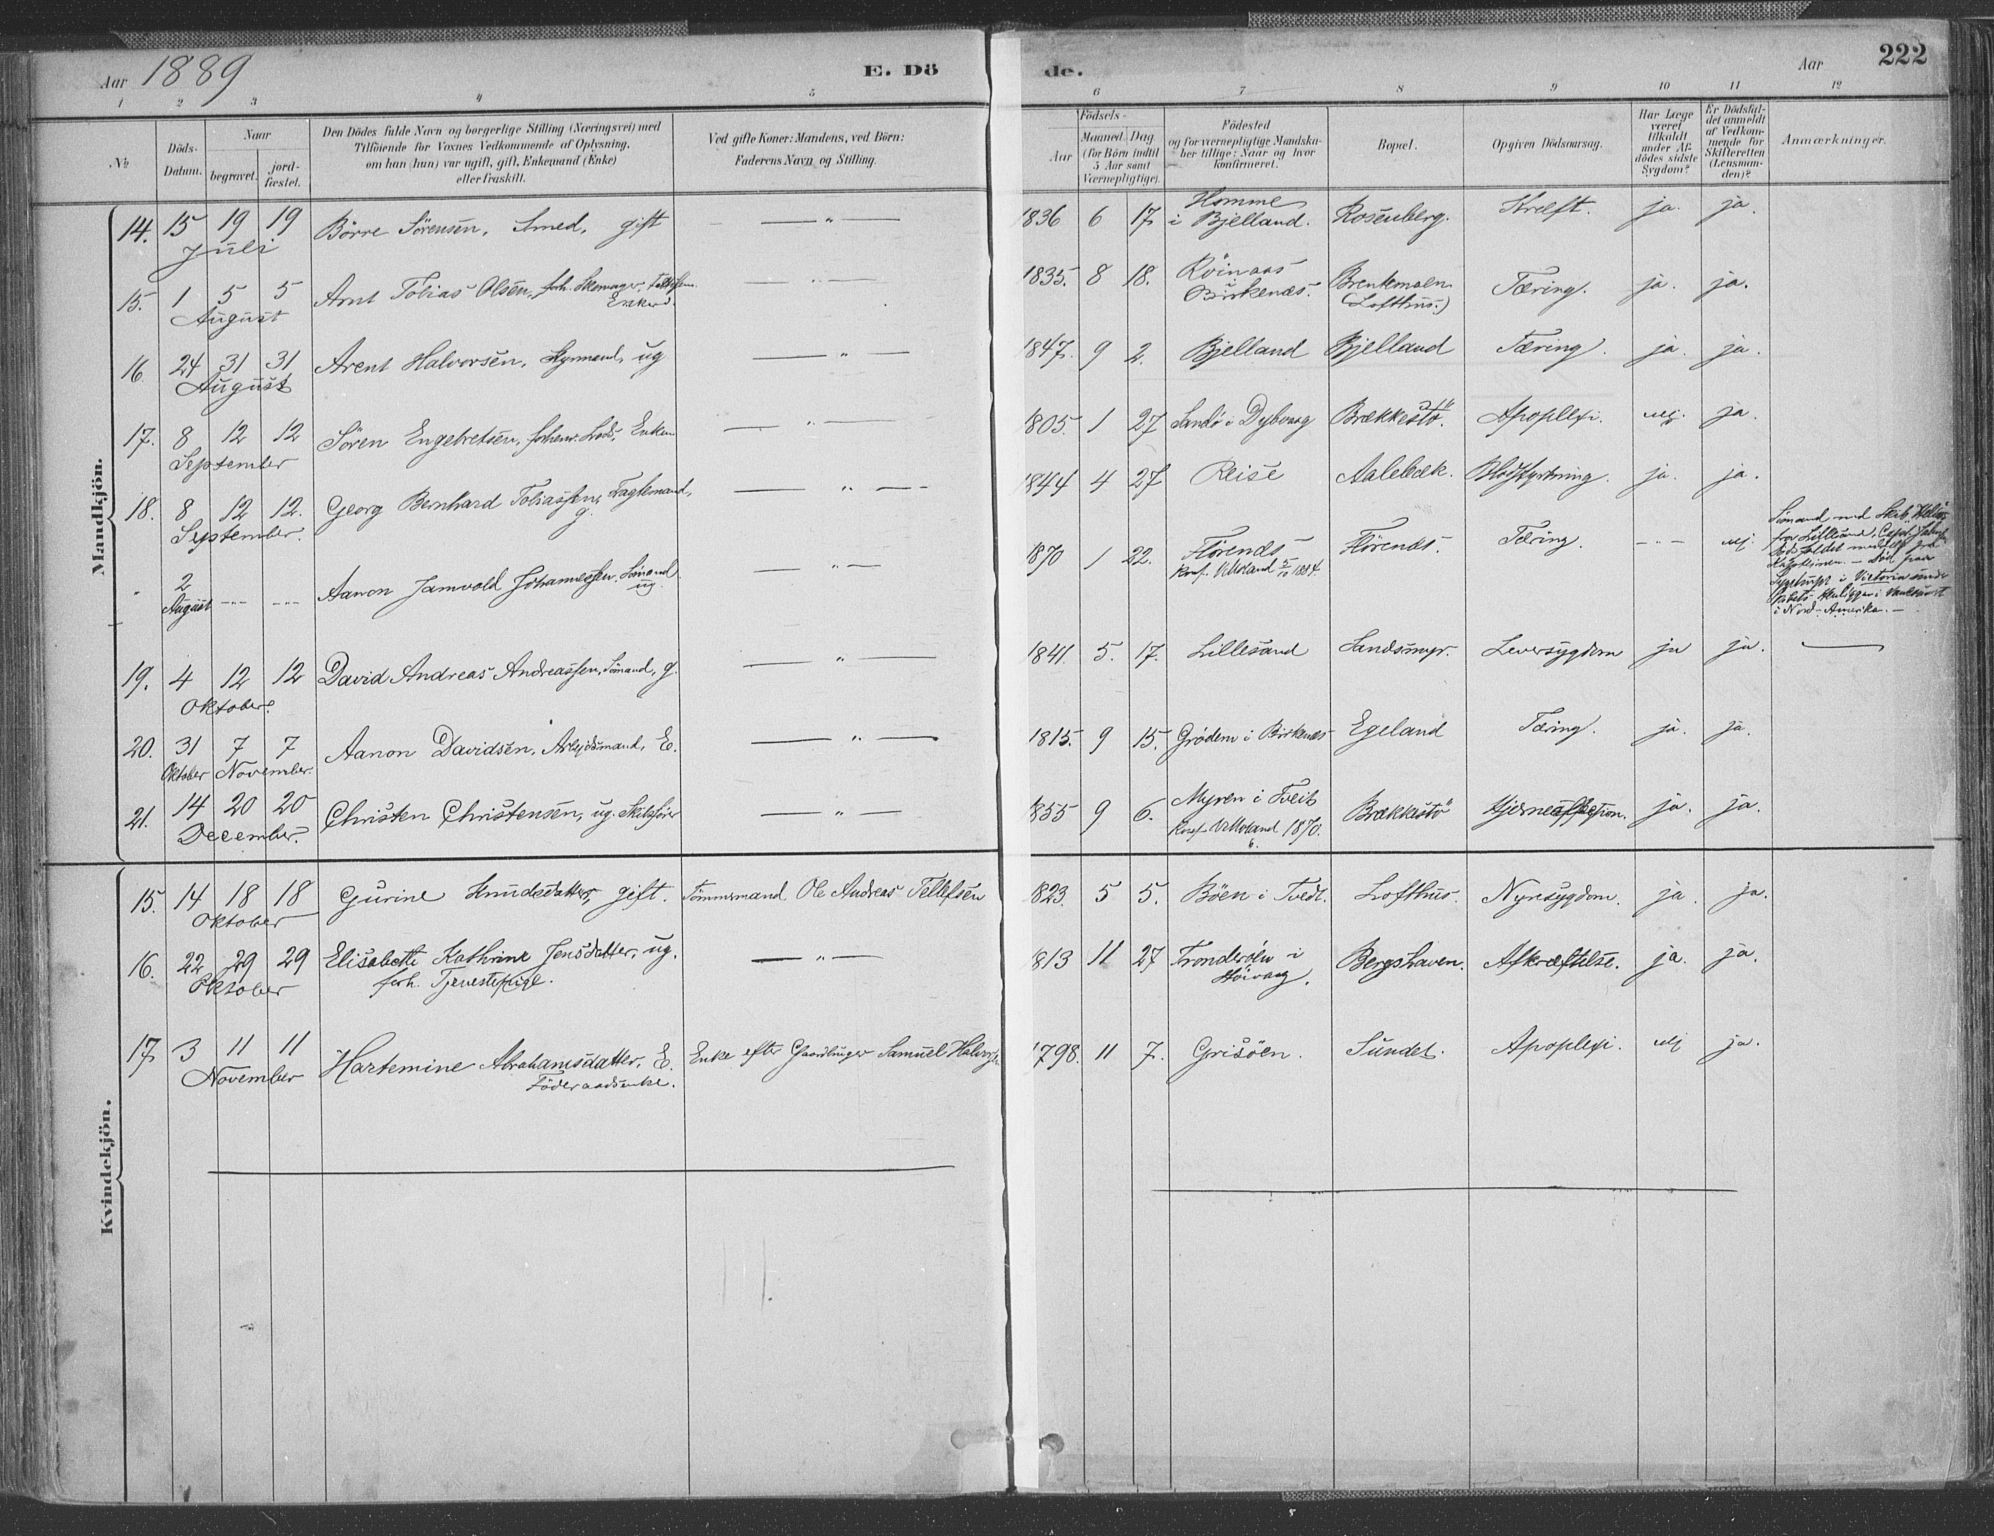 Aar 1889
E. Dö
de.
Aar
222
1 2 3 4 5
6 7 8 9 10 11 12
No
Döds-
Datum.
Naar
begravet.
jord-
fæstet.
Den Dödes fulde Navn og borgerlige Stilling (Næringsvei) med
Tilföiende for Voxnes Vedkommende af Oplysning,
om han (hun) var ugift, gift, Enkemand (Enke)
eller fraskilt.
Ved gifte Koner: Mandens, ved Börn:
Faderens Navn og Stilling.
Födsels-
Aar
Maaned. Dag
(for Börn indtil
5 Aar samt
Værnepligtige).
Födested
og for værnepligtige Mandska-
ber tillige: Naar og hvor
konfirmeret.
Bopæl.
Opgiven Dödsaarsag.
Har Læge
været
tilkaldt
under Af-
dödes sidste
Sygdom?
Er Dödsfal-
det anmeldt
af Vedkom-
mende for
Skifteretten
(Lensman-
den)?
Anmærkninger.
Mandkjön.
14. 15 19 19 Börre Sörensen, Smed, gift — „ — 1836 6 17. Homme
Juli i Bjelland. Rosenberg. Kræft. ja. ja.
15. 1 5 5 Arnt Tobias Olsen, forh. Skomager, — „ — 1835. 8 18. Röinaas
August Enkem. Birkenæs. Brentemoen
(Lofthus.) Tæring. ja. ja.
16 24 31 31 Arent Halvorsen, Styrmand, ug — „ — 1847. 9 2. Bjelland Bjelland Tæring. ja. ja.
August
17. 8 12 12 Sören Engebretsen, forhenv. Lods, Enkem — „ — 1805. 1 27 Sandö i Dybvaag Brækkestö. Apoplexi. nej. ja.
September
18. 8 12 12. Georg Bernhard Tobiassen, Fragtemand, — „ — 1844 4 27 Reise Aalebæk. Blodstyrtning. ja. ja.
September. g.
„ 2 --- --- Aanon Jamvold Johannessen, Sömand — „ — 1870 1 22. Flörenæs Flörenæs. Tæring. --- nej.
August ug. Konf. V.Moland 5/10 1884.
Sömand med Skib
fra Lillesand, Capt.
Dödsfaldet meddelt fra
Kapteinen. — död paa
Sygehuset i Victoria
i Nord-Amerika. —
19. 4 12 12 David Andreas Andreassen, Sömand, g. — „ — 1841. 5. 17. Lillesand Sandsmyr. Leversygdom ja ja. —
Oktober.
20. 31 7 7 Aanon Davidsen, Arbeidsmand, E. — „ — 1815. 9 15. Grödem i Birkenæs Egeland Tæring. ja. ja.
Oktober November.
21. 14 20 20 Christen Christensen, ug. Skibsförer — „ — 1855 9 6. Myren i Tveit Brækkestö Hjerneaffektion. ja. ja.
December. Konf. V.Moland 1870.
Kvindekjön.
15. 14 18 18 Gurine Knudsdatter, gift. Tömmermand Ole Andreas Tellefsen 1823. 5 5. Böen i Tvedt. Lofthus. Nyresygdom. ja. ja.
Oktober
16. 22 29 29 Elisabeth Kathrine Jensdatter, ug. — „ — 1813 11 27 Tronderöen i Bergshaven. Afkræftelse. ja. ja.
Oktober forh. Tjenestepige. Höivaag.
17. 3 11 11 Hartemine Abrahamsdatter, E. Enke efter Gaardbruger Samuel Halvorsen 1798. 11 7. Grisöen. Sundet. Apoplexi. nej ja.
November Föderaadsenke.